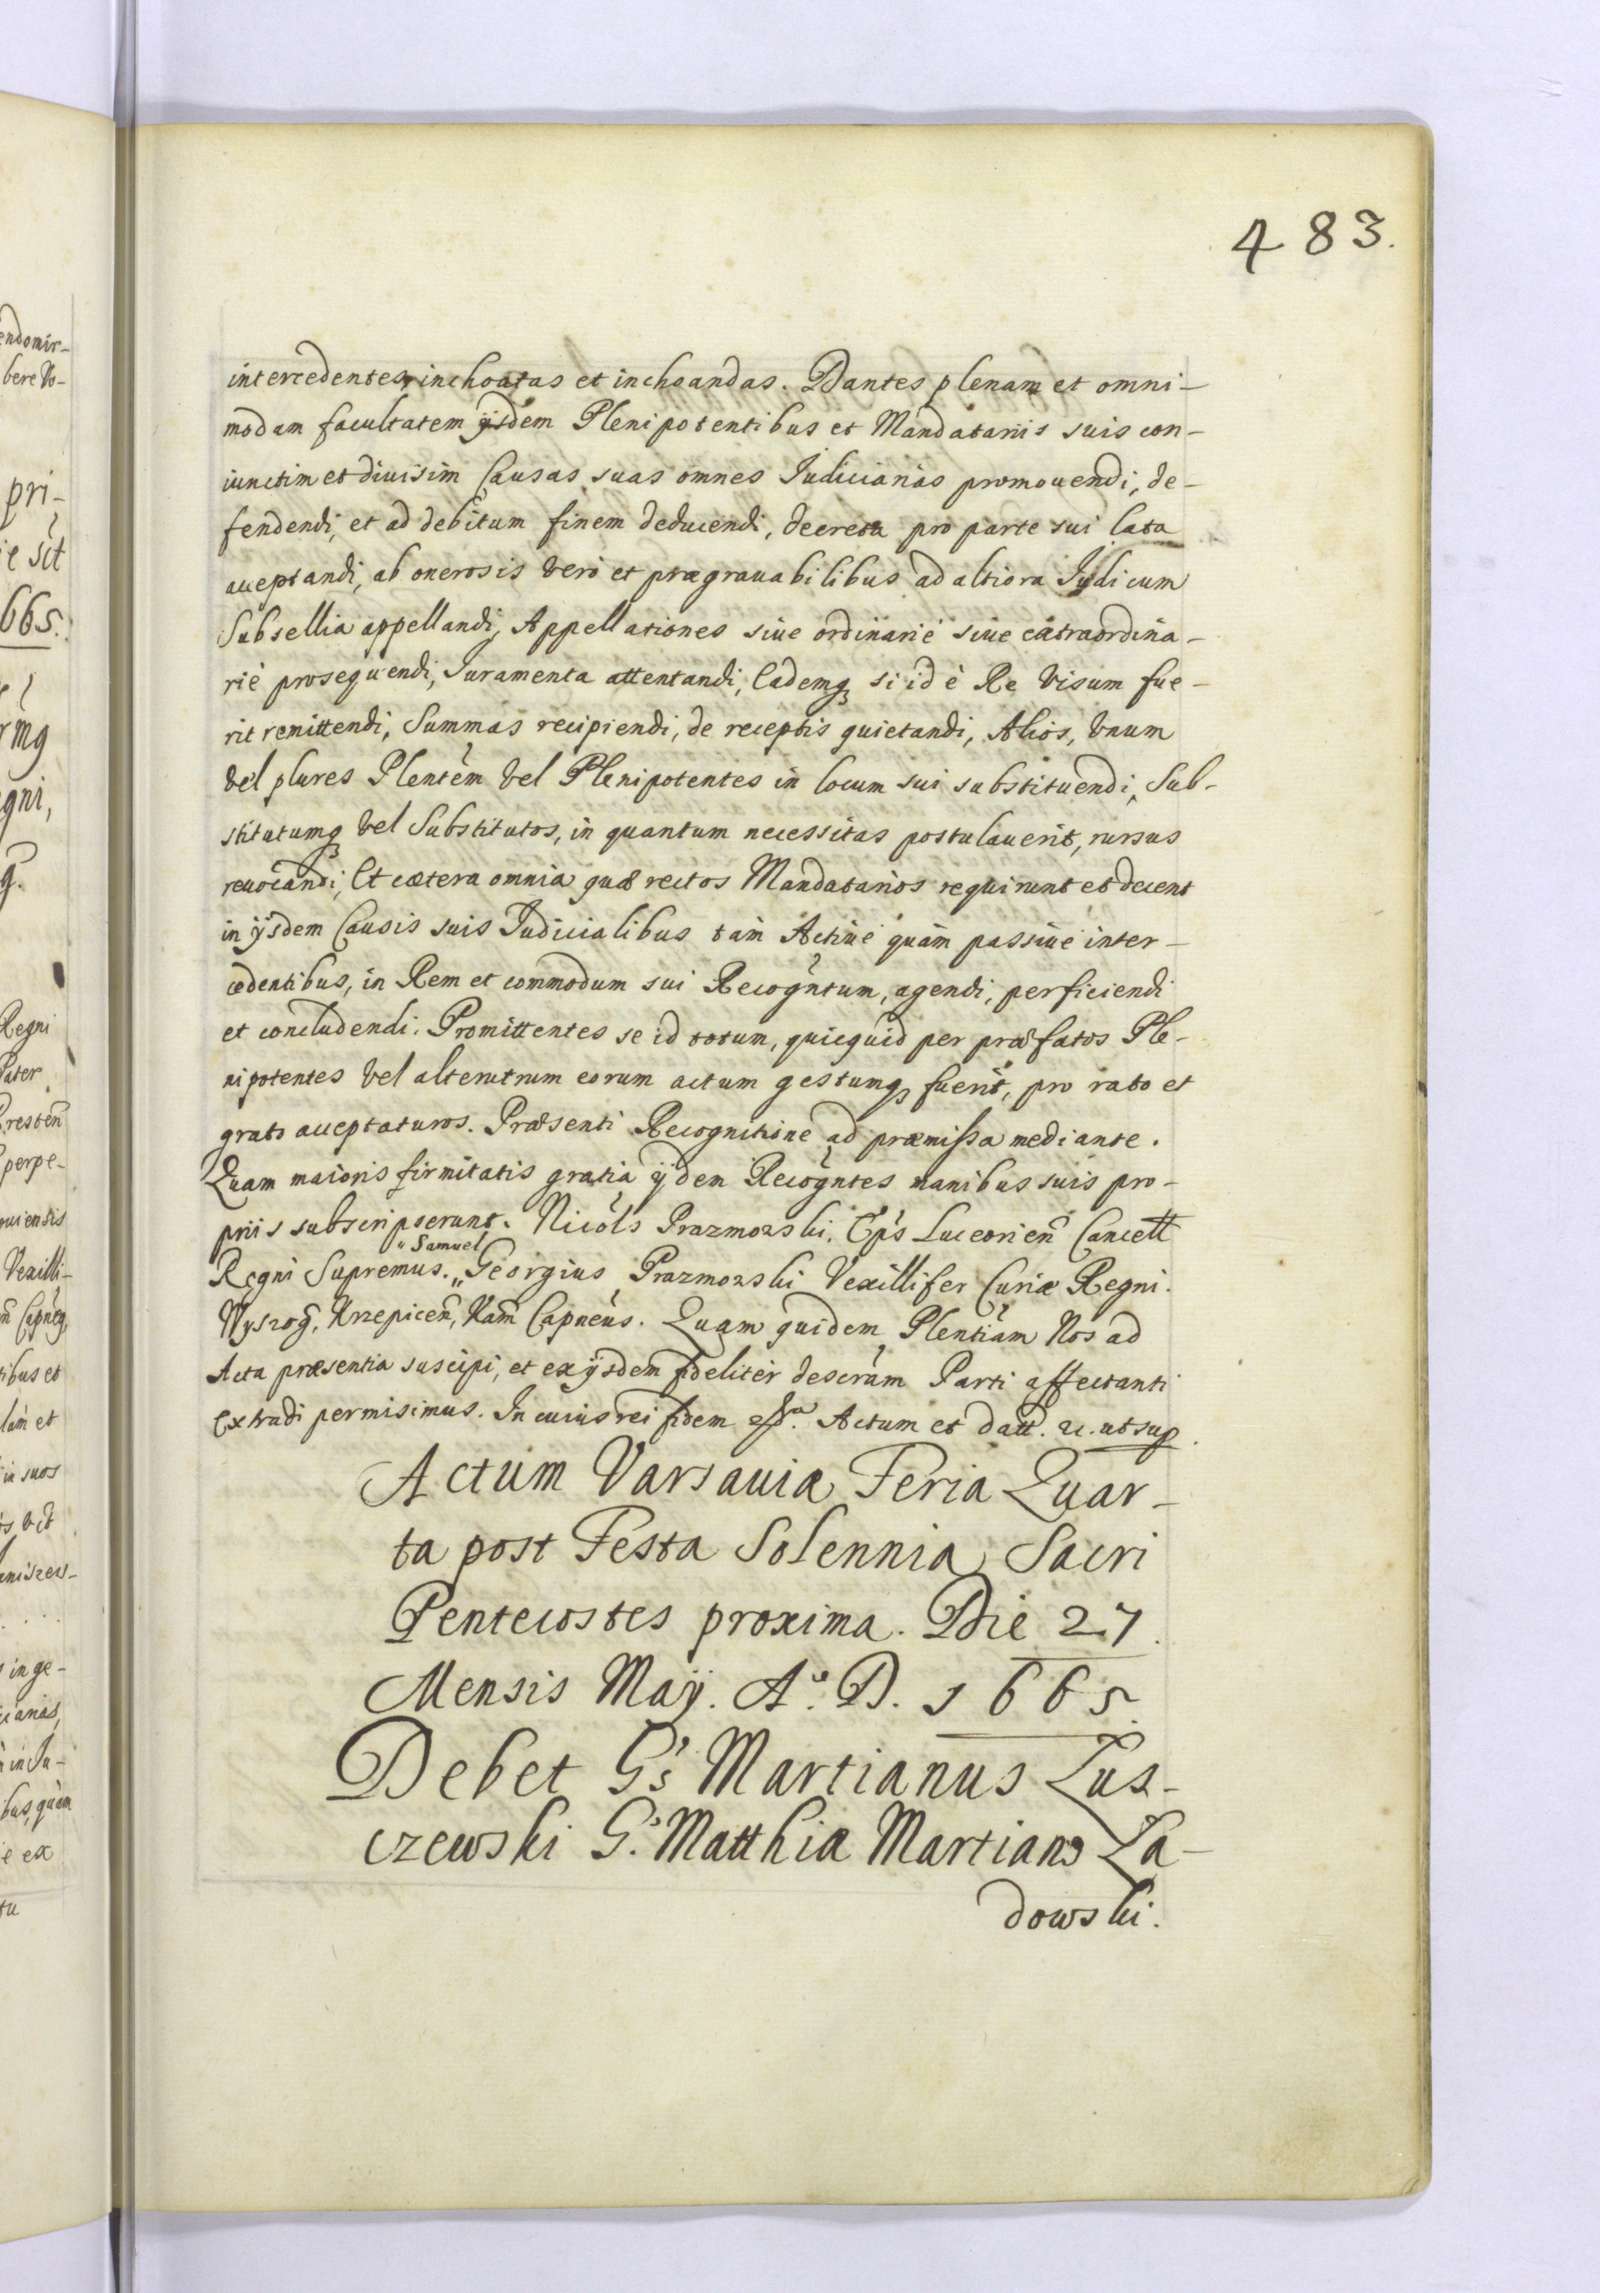 483.
intercedentes, inchoatas et inchoandas. Dantes plenam et omni-
modam facultatem ijsdem Plenipotentibus et Mandatariis suis con-
iunctim et diuisim Causas suas omnes Iudiciarias promouendi, de-
fendendi, et ad debitum finem deducendi, decreta pro parte sui lata
acceptandi, ab onerosis vero et praegrauabilibus ad altiora Iudicum
Subsellia appellandi, Appellationes siue ordinarié siue extraordina-
rié prosequendi, Iuramenta attentandi, Eademq3 si id è Re visum fue-
rit remittendi, Summas recipiendi, de receptis quietandi, Alios, vnum
vel plures Plentem vel Plenipotentes in locum sui substituendi, Sub-
stitutumq3 vel Substitutos, in quantum necessitas postulauerit, rursus
reuocandi, Et caetera omnia quae rectos Mandatarios requirunt et decent
in ijsdem Causis suis Iudicialibus tam Actiué quám passiué inter-
cedentibus, in Rem et commodum sui Recogntum, agendi, perficiendi
et concludendi. Promittentes se id totum, quicquid per praefatos Ple-
nipotentes vel alterutrum eorum actum gestumq3 fuerit, pro rato et
grato acceptaturos. Praesenti Recognitione ad praemissa mediante.
Quam maioris firmitatis gratia ijdem Recogntes manibus suis pro-
priis subscripserunt. Nicols Prazmowski. Eps Luceorien Cancell
Regni Supremus. „ Samuel Georgius Prazmowski Vexillifer Curiae Regni.
Wyszog, Krzepicen, Kam Capneus. Quam quidem Plentiam Nos ad
Acta praesentia suscipi, et ex ijsdem fideliter descram Parti affectanti
Extradi permisimus. In cuius rei fidem Actum et datt. ut sup.
Actum Varsauiae Feria Quar-
ta post Festa Solennia Sacri
Pentecostes proxima. Die 27.
Mensis Maij. Ao. D. 1665.
Debet Gs Martianus Lus-
czewski G. Matthiae Martiano La-
dowski.
endomir-
bere Vo-
pri-
ie sit
665.
gni,
Regni
Pater
perpe-
Vexilli-
tibus et
in suos
in ge-
in Iu-
ibus, quàm